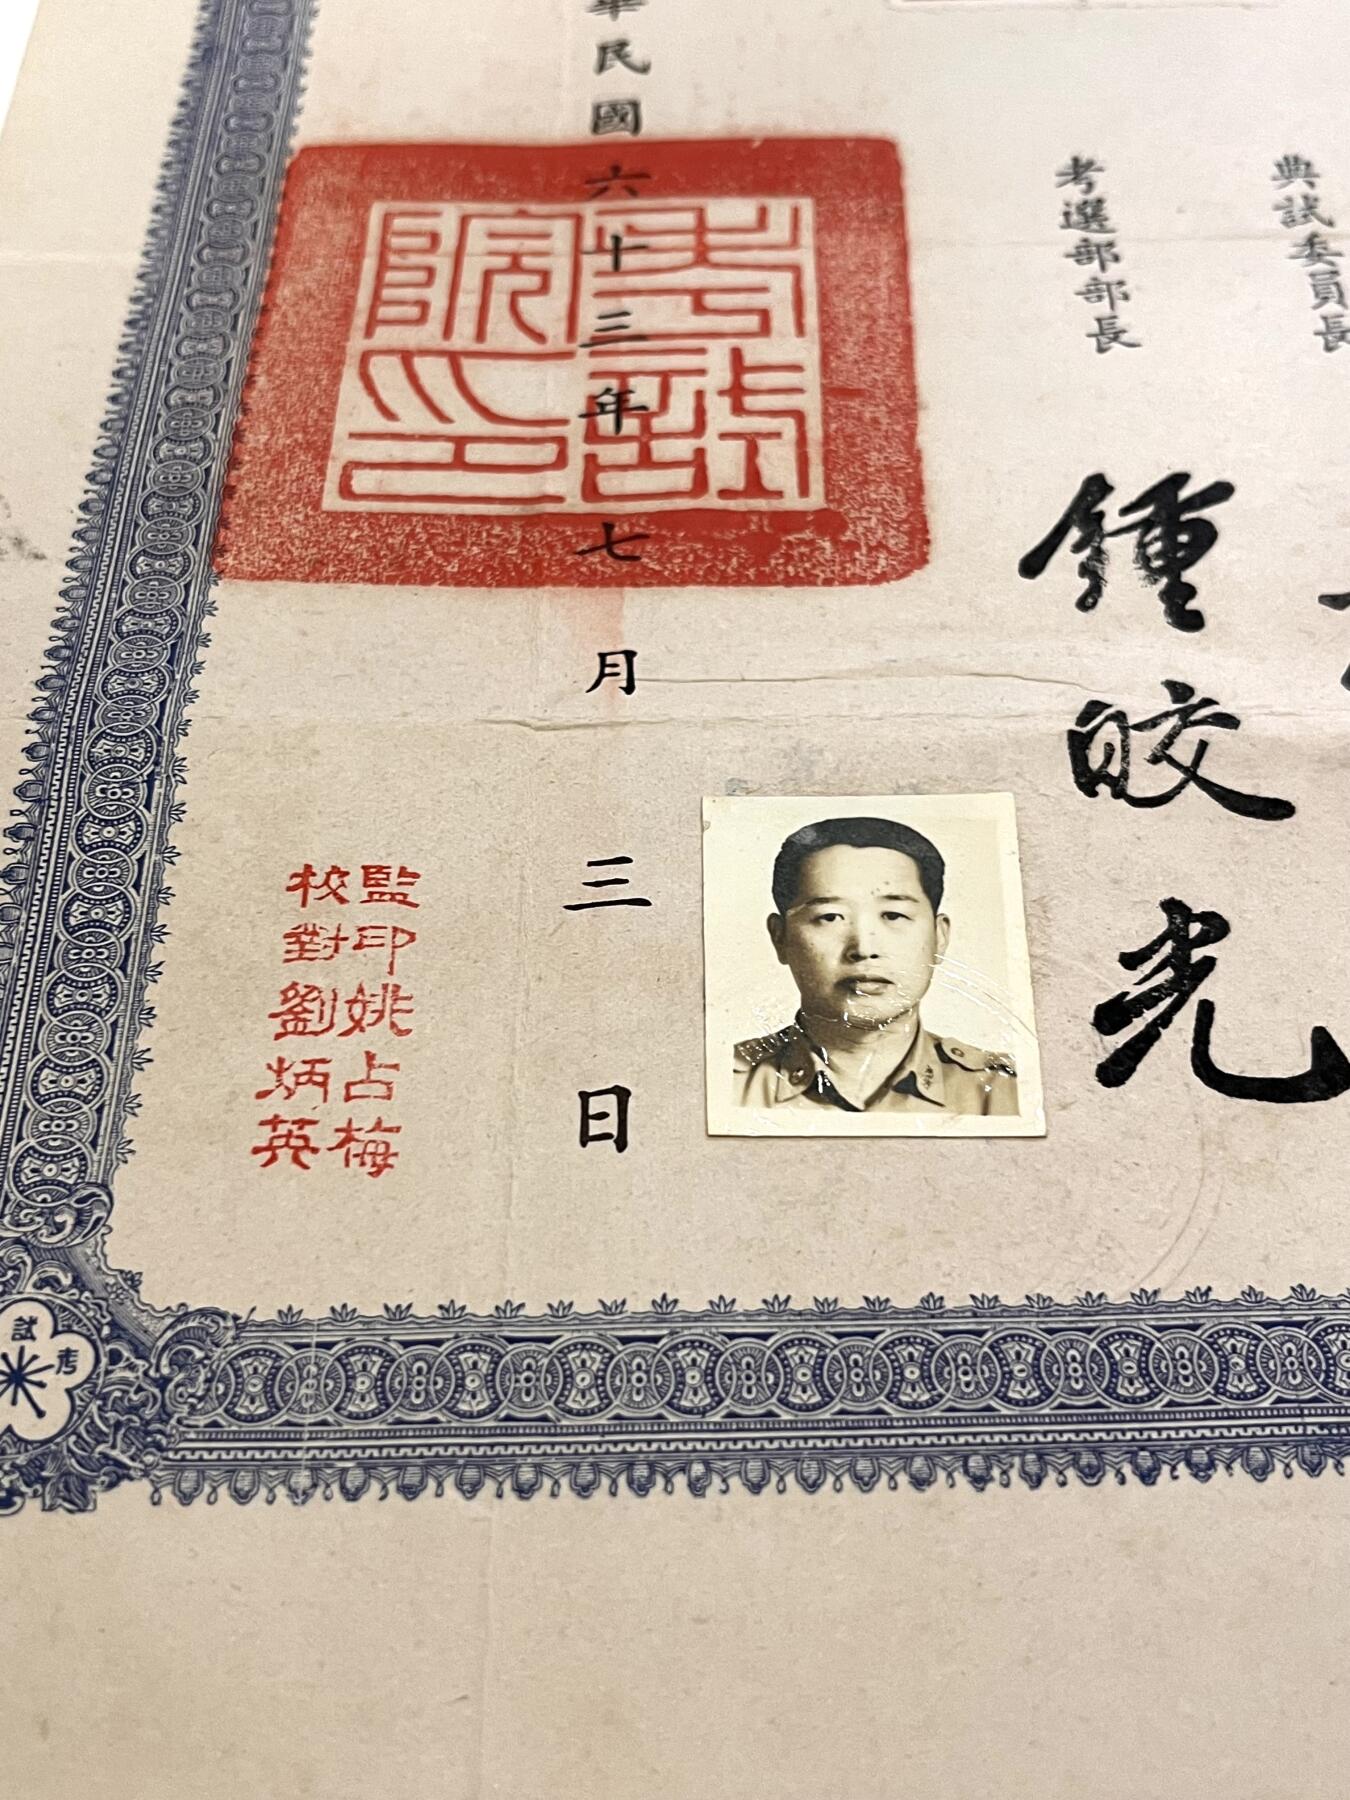 典試委員長
考選部部長
鍾皎光
華民國六十三年七月三日
考試院印
監印姚占梅
校對劉炳英
考試